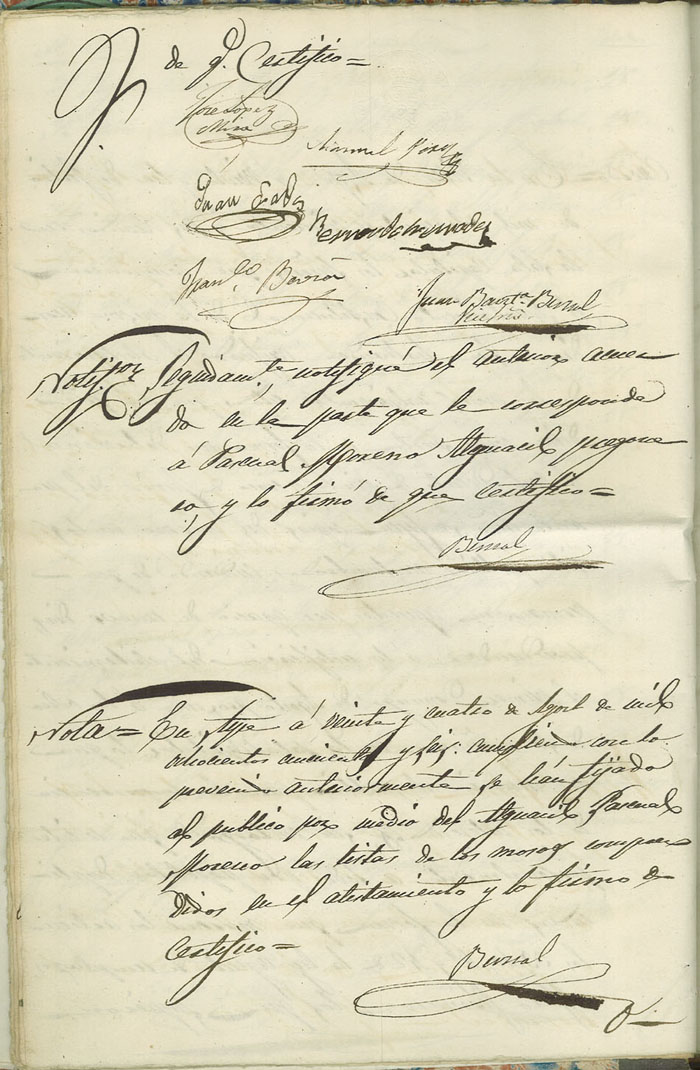 de q.e Certifico=
Jose Lopez
Mira
Manuel Perez
Juan
Bernardo
Fran.co Barron
Juan Baut.a Bernal
Secret.o
Notif.on Seguidam.te notifiqué el anterior acuer
do en la parte que le corresponde
á Pascual Moreno Alguacil pregone
ro, y lo firmó de que certifico=
Bernal
Nota= En Aspe á veinte y cuatro de Agost. de mil
ochocientos cincuenta y seis: cumpliendo con lo
prevenido anteriormente se hán fijado
al publico por medio del Alguacil Pascual
Moreno las listas de los mosos compren
didos en el alistamiento y lo firmo de
Certifico=
Bernal